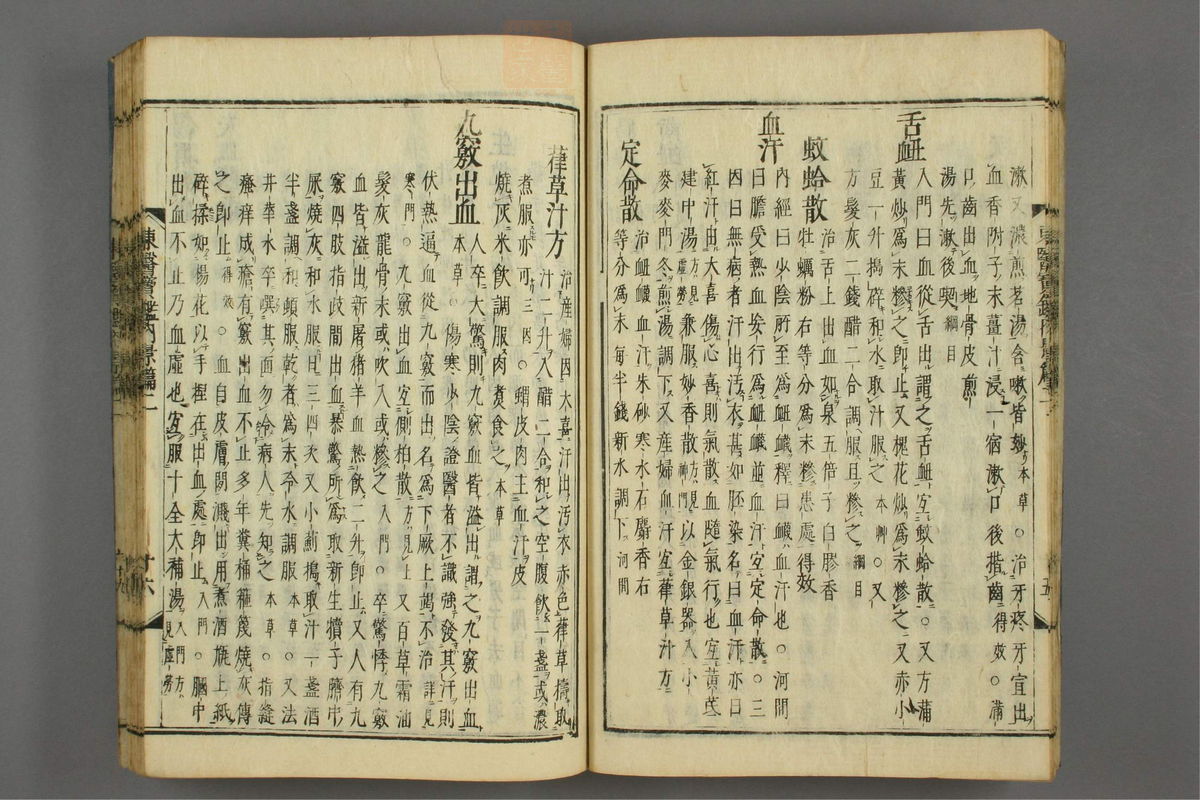 漱又濃煎茗湯含嗽皆妙本草○治牙疼牙宣出
血香附子末薑汁浸一宿漱口後揩齒得效○滿
口齒出血地骨皮煎
湯先漱後喫綱目
舌衄
入門曰血從舌出謂之舌衄宜蚊蛤散○又方蒲
黃炒爲末糝之卽止又槐花炒爲末糝之又赤小
豆一升搗碎和水取汁服之本草○又
方髮灰二錢醋二合調服且糝之綱目
蚊蛤散
治舌上出血如泉五倍子白膠香
牡蠣粉右等分爲末糝患處得效
血汗
內經曰少陰所至爲衄衊釋曰衊血汗也○河間
曰膽受熱血妄行爲衄衊並血汗宜定命散○三
因曰無病者汗出汚衣甚如胚染名曰血汗亦曰
紅汗由大喜傷心喜則氣散血隨氣行也宜黃芪
建中湯方見虛勞兼服妙香散方見神門以金銀器入小
麥麥門冬煎湯調下又産婦血汗宜葎草汁方
定命散
治衄衊血汗朱砂寒水石麝香右
等分爲末每半錢新水調下河間
葎草汁方
治産婦因大喜汗出汚衣赤色葎草擣取
汁二升入醋二合和之空腹飮一盞或濃
煮服亦可三因○蝟皮主血汗皮
燒灰米飮調服肉煮食之本草
九竅出血
人卒大驚則九竅血皆溢出謂之九竅出血
本草○傷寒少陰證醫者不識強發其汗則
伏熱逼血從九竅而出名爲下厥上竭不治詳見
寒門○九竅出血宜側柏散方見上又百草霜油
髮灰龍骨末或吹入或糝之入門○卒驚悸九竅
血皆溢出新屠猪羊血熱飮二升卽止又人有九
竅四肢指歧間出血暴驚所爲取新生犢子臍中
屎燒灰和水服日三四次又小薊搗取汁一盞酒
半盞調和頓服乾者爲末冷水調服本草○又法
井華水卒噀其面勿令病人先知之本草○指縫
瘙痒成瘡有竅出血不止多年糞桶箍篾燒灰傅
之卽止得效○血自皮膚間濺出用煮酒甁上紙
碎揉如楊花以手捏在出血處卽止入門○腦中
出血不止乃血虛也宜服十全大補湯入門方見虛勞
東醫寶鑑內景篇二
廿六